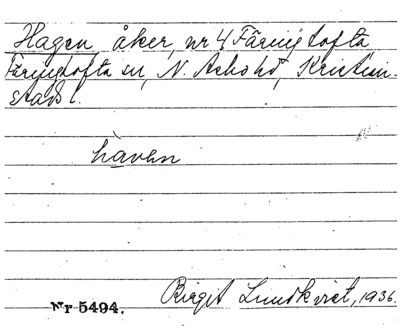 Hagen, åker, nr 4 Färingtofta
Färingtofta sn, N. Åsbo hd, Kristian-
stads l.
hàven
Birgit Lundkvist, 1936.
Nr 5494.